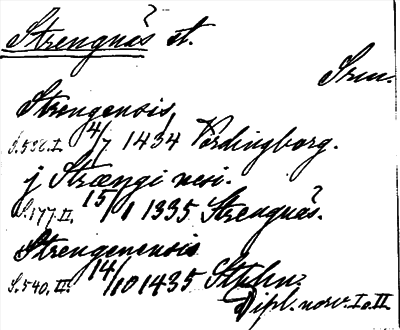 Strengnäs st.
Srm.
Strengensis,
S.536.I. 4/7 1434 Vordingborg.
j Strængi nesi.
S.177.II. 15/1 1335 Strengnäs?
Strengenensis
S.540.III. 14/10 1435 Sthlm
Dipl. norv. I o II